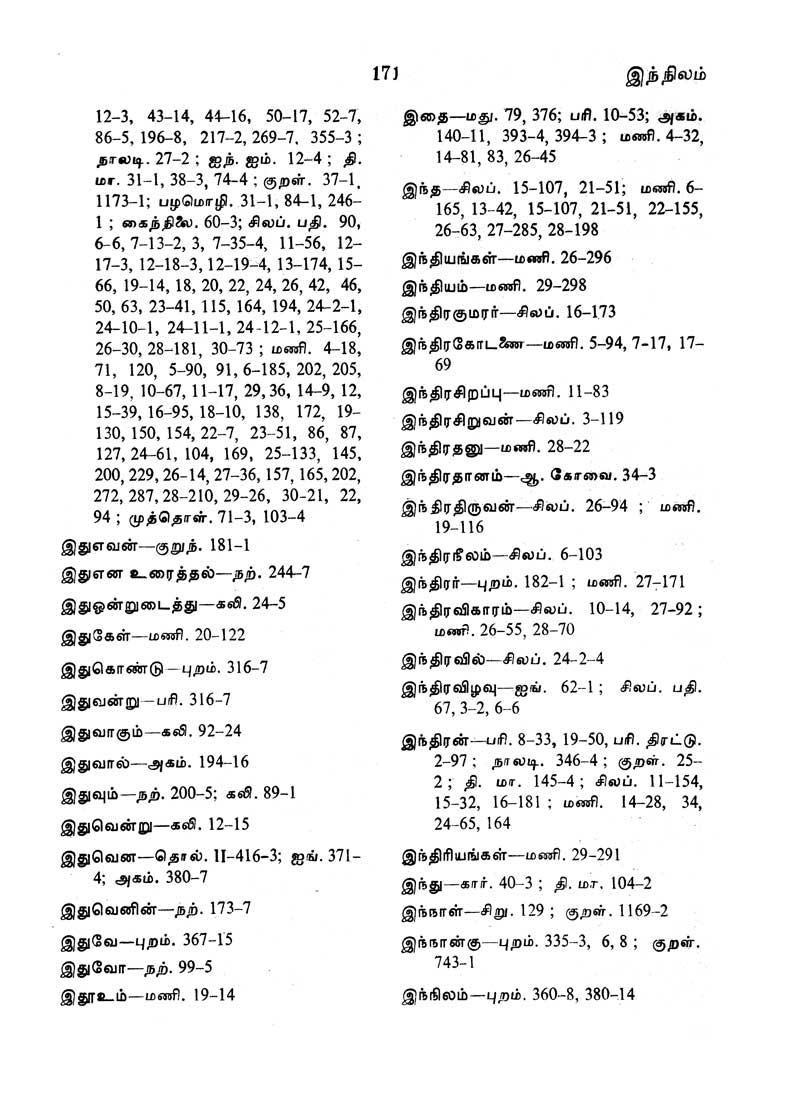 171
இந்நிலம்
12–3, 43–14, 44–16, 50–17, 52–7,
86–5, 196–8, 217–2, 269–7, 355–3 ;
நாலடி. 27–2 ; ஐந். ஐம். 12–4 ; தி.
மா. 31–1, 38–3, 74–4 ; குறள். 37–1,
1173–1; பழமொழி. 31–1, 84–1, 246–
1 ; கைந்நிலை. 60–3; சிலப். பதி. 90,
6–6, 7–13–2, 3, 7–35–4, 11–56, 12–
17–3, 12–18–3, 12–19–4, 13–174, 15–
66, 19–14, 18, 20, 22, 24, 26, 42, 46,
50, 63, 23–41, 115, 164, 194, 24–2–1,
24–10–1, 24–11–1, 24–12–1, 25–166,
26–30, 28–181, 30–73 ; மணி. 4–18,
71, 120, 5–90, 91, 6–185, 202, 205,
8–19, 10–67, 11–17, 29, 36, 14–9, 12,
15–39, 16–95, 18–10, 138, 172, 19–
130, 150, 154, 22–7, 23–51, 86, 87,
127, 24–61, 104, 169, 25–133, 145,
200, 229, 26–14, 27–36, 157, 165, 202,
272, 287, 28–210, 29–26, 30–21, 22,
94 ; முத்தொள். 71–3, 103–4
இதுஎவன்—குறுந். 181–1
இதுஎன உரைத்தல்—நற். 244–7
இதுஒன்றுடைத்து—கலி. 24–5
இதுகேள்—மணி. 20–122
இதுகொண்டு—புறம். 316–7
இதுவன்று—பரி. 316–7
இதுவாகும்—கலி. 92–24
இதுவால்—அகம். 194–16
இதுவும்—நற். 200–5; கலி. 89–1
இதுவென்று—கலி. 12–15
இதுவென—தொல். II–416–3; ஐங். 371–
4; அகம். 380–7
இதுவெனின்—நற். 173–7
இதுவே—புறம். 367–15
இதுவோ—நற். 99–5
இதூஉம்—மணி. 19–14
இதை—மது. 79, 376; பரி. 10–53; அகம்.
140–11, 393–4, 394–3 ; மணி. 4–32,
14–81, 83, 26–45
இந்த—சிலப். 15–107, 21–51; மணி. 6–
165, 13–42, 15–107, 21–51, 22–155,
26–63, 27–285, 28–198
இந்தியங்கள்—மணி. 26–296
இந்தியம்—மணி. 29–298
இந்திரகுமரர்—சிலப். 16–173
இந்திரகோடணை—மணி. 5–94, 7–17, 17–
69
இந்திரசிறப்பு—மணி. 11–83
இந்திரசிறுவன்—சிலப். 3–119
இந்திரதனு—மணி. 28–22
இந்திரதானம்—ஆ. கோவை. 34–3
இந்திரதிருவன்—சிலப். 26–94 ; மணி.
19–116
இந்திரநீலம்—சிலப். 6–103
இந்திரர்—புறம். 182–1 ; மணி. 27–171
இந்திரவிகாரம்—சிலப். 10–14, 27–92 ;
மணி. 26–55, 28–70
இந்திரவில்—சிலப். 24–2–4
இந்திரவிழவு—ஐங். 62–1 ; சிலப். பதி.
67, 3–2, 6–6
இந்திரன்—பரி. 8–33, 19–50, பரி. திரட்டு.
2–97 ; நாலடி. 346–4 ; குறள். 25–
2 ; தி. மா. 145–4 ; சிலப். 11–154,
15–32, 16–181 ; மணி. 14–28, 34,
24–65, 164
இந்திரியங்கள்—மணி. 29–291
இந்து—கார். 40–3 ; தி. மா. 104–2
இந்நாள்—சிறு. 129 ; குறள். 1169–2
இந்நான்கு—புறம். 335–3, 6, 8 ; குறள்.
743–1
இந்நிலம்—புறம். 360–8, 380–14